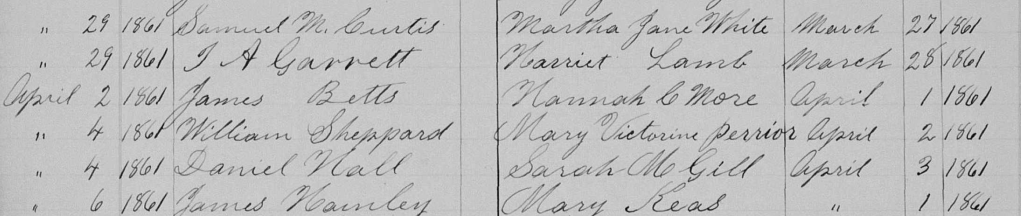 " 29 1861 Samuel M. Curtis Martha Jane White March 27 1861
" 29 1861 T A Garrett Harriet Lamb March 28 1861
April 2 1861 James Betts Hannah C More April 1 1861
" 4 1861 William Sheppard Mary Victorine Perrior April 2 1861
" 4 1861 Daniel Hall Sarah M Gill April 3 1861
" 6 1861 James Hamley Mary Keas " 1 1861